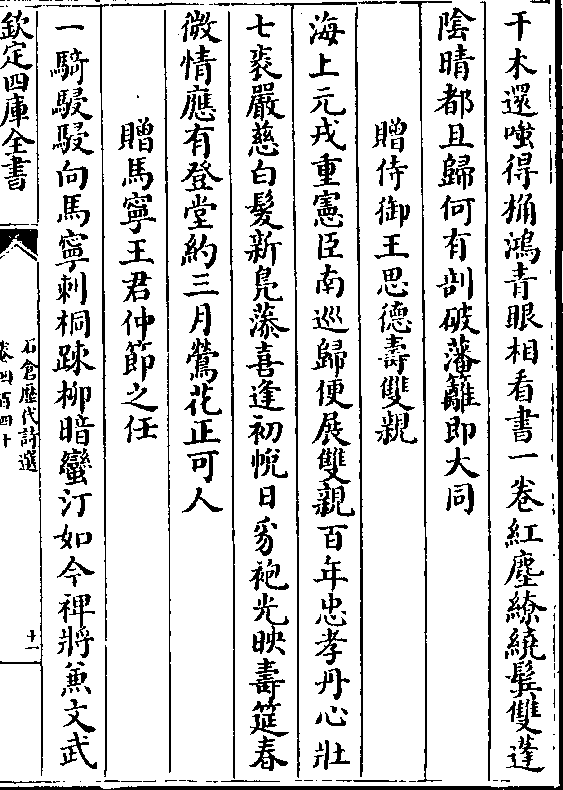 干木還嗤得桷鴻青眼相看書一卷紅塵繚繞鬂雙蓬
陰晴都且歸何有剖破藩籬即大同
贈侍御王思德壽雙親
海上元戎重憲臣南巡歸便展雙親百年忠孝丹心壯
七裘嚴慈白髪新鳧藻喜逢初帨日豸袍光映壽筵春
微情應有登堂約三月鶯花正可人
贈馬寧王君仲節之任
一騎駸駸向馬寧刺桐踈柳暗蠻汀如今裨將兼文武
欽定四庫全書
石倉歴代詩選
卷四百四十
十一